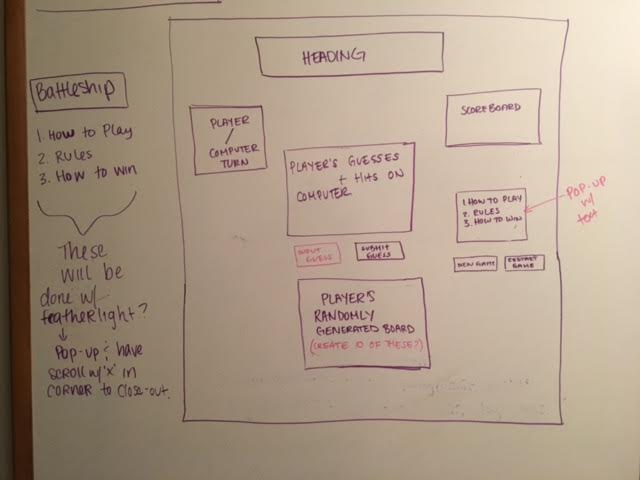 Battleship
1. How to Play
2. Rules
3. How to win
These
will be
done w/
featherlight?
Pop-up & have
scroll w/ 'x' in
corner to close-out.
HEADING
PLAYER
/
COMPUTER
TURN
SCOREBOARD
PLAYER'S GUESSES
+ HITS ON
COMPUTER
1. HOW TO PLAY
2. RULES
3. HOW TO WIN
POP-UP
w/
text
INPUT
GUESS
SUBMIT
GUESS
NEW GAME
RESTART
GAME
PLAYER'S
RANDOMLY
GENERATED BOARD
(CREATE 10 OF THESE?)